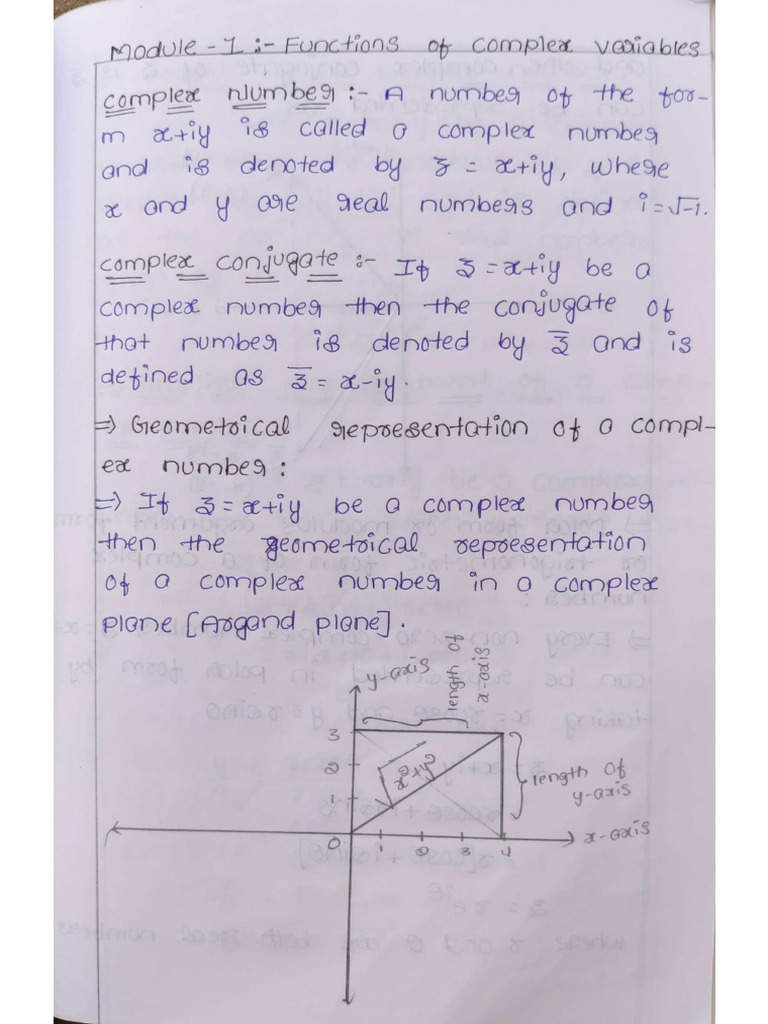 Module - 1 :- Functions of complex variables
complex Number :- A number of the for-
m x+iy is called a complex number
and is denoted by z = x+iy, where
x and y are real numbers and i = √-1.
complex conjugate :- If z = x+iy be a
complex number then the conjugate of
that number is denoted by z̅ and is
defined as z̅ = x-iy.
⇒ Geometrical representation of a compl-
ex number :
⇒ If z = x+iy be a complex number
then the geometrical representation
of a complex number in a complex
plane [Argand plane].
y-axis
length of
x-axis
3
2
1
√x²+y²
length of
y-axis
0
1
2
3
4
x-axis